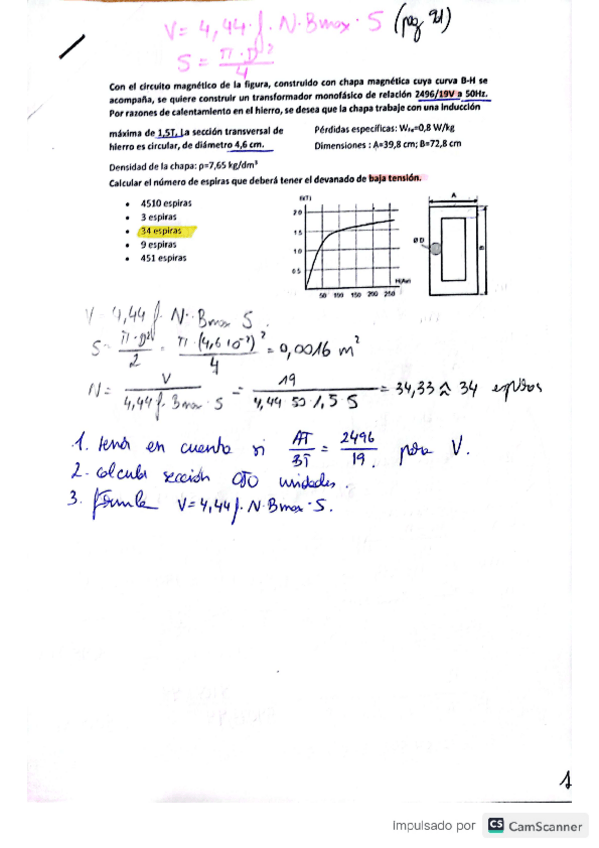 V= 4,44·f·N·Bmax·S (pag 21)
S = π·D²/4
Con el circuito magnético de la figura, construido con chapa magnética cuya curva B-H se
acompaña, se quiere construir un transformador monofásico de relación 2496/19V a 50Hz.
Por razones de calentamiento en el hierro, se desea que la chapa trabaje con una inducción
máxima de 1,5T. La sección transversal de
hierro es circular, de diámetro 4,6 cm.
Pérdidas específicas: Wfe=0,8 W/kg
Dimensiones : A=39,8 cm; B=72,8 cm
Densidad de la chapa: ρ=7,65 kg/dm³
Calcular el número de espiras que deberá tener el devanado de baja tensión.
• 4510 espiras
• 3 espiras
• 34 espiras
• 9 espiras
• 451 espiras
B(T)
2 0
1 5
1 0
0 5
50 100 150 200 250
A
ØD
B
V= 4,44 f· N·Bmax S.
S= π·D²/2 = π·(4,6 10⁻²)²/4 = 0,0016 m²
N= V/4,44 f·Bmax·S = 19/4,44 50·1,5 S = 34,33 ≈ 34 espiras
1. tener en cuenta si AT/BT = 2496/19. para V.
2- calcular sección OJO unidades.
3. fórmula V=4,44 f·N·Bmax·S.
1
Impulsado por CS CamScanner